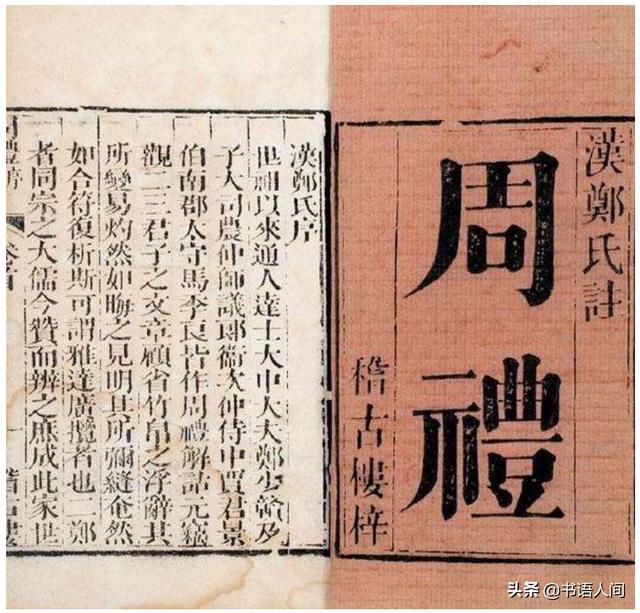 漢鄭氏註
周禮
稽古樓梓
漢鄭氏序
世祖以來通人達士大中大夫鄭少贛及
子大司農仲師議郎衞次仲侍中賈君景
伯南郡太守馬季良皆作周禮解詁元竊
觀二三君子之文章顧省竹帛之浮辭其
所變易灼然如晦之見明其所彌縫奄然
如合符復析斯可謂雅達廣攬者也二鄭
者同宗之大儒今贊而辨之庶成此家世
头条 @书语人间